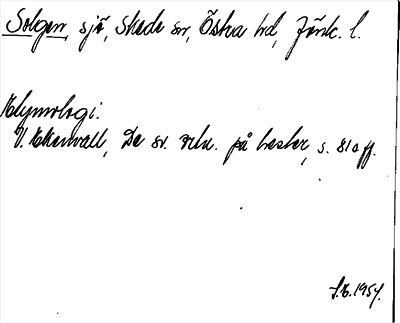 Solgen, sjö, Skede sn, Östra hd, Jönk. l.
Etymologi:
V. Ekenvall, De sv. ortn. på hester, s. 81 o ff.
S.E. 1954.